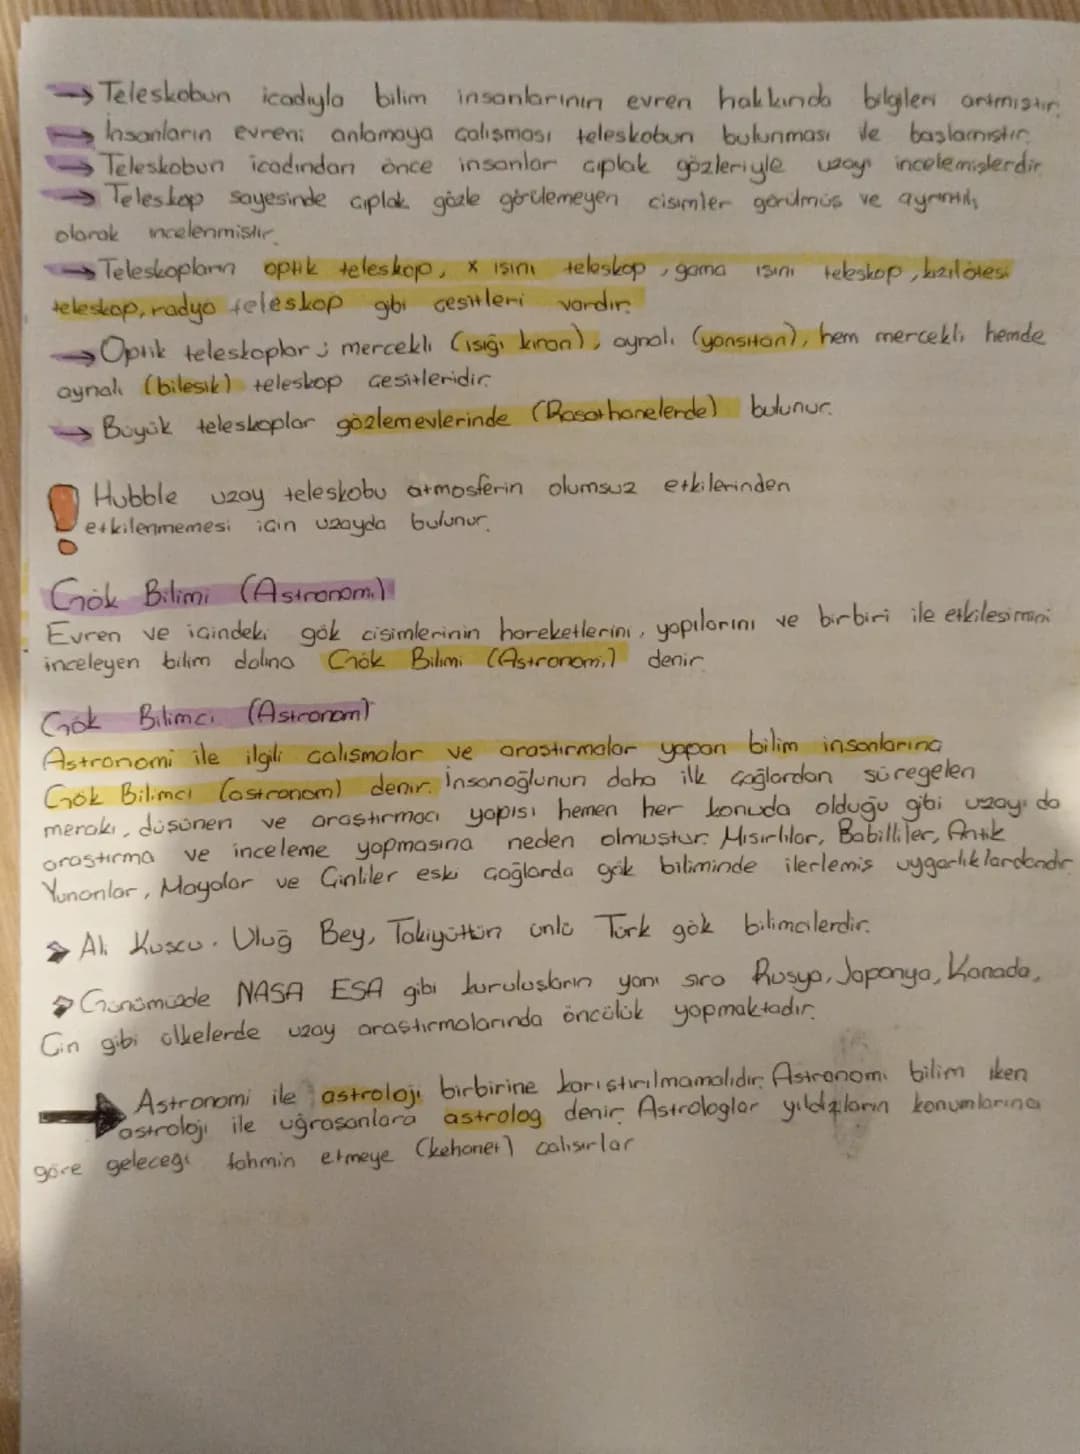 → Teleskobun icadıyla bilim insanlarının evren hakkında bilgileri artmıştır.
→ İnsanların evreni anlamaya çalışması teleskobun bulunması ile başlamıştır.
→ Teleskobun icadından önce insanlar çıplak gözleriyle uzayı incelemişlerdir.
→ Teleskop sayesinde çıplak gözle görülemeyen cisimler görülmüş ve ayrıntılı
olarak incelenmiştir.
→ Teleskopların optik teleskop, x ışını teleskop, gama ışını teleskop, kızılötesi
teleskop, radyo teleskop gibi çeşitleri vardır.
→ Optik teleskoplar; mercekli (ışığı kıran), aynalı (yansıtan), hem mercekli hemde
aynalı (bileşik) teleskop çeşitleridir.
→ Büyük teleskoplar gözlemevlerinde (Rasathanelerde) bulunur.
! Hubble uzay teleskobu atmosferin olumsuz etkilerinden
etkilenmemesi için uzayda bulunur.
Gök Bilimi (Astronomi)
Evren ve içindeki gök cisimlerinin hareketlerini, yapılarını ve birbiri ile etkileşimini
inceleyen bilim dalına Gök Bilimi (Astronomi) denir.
Gök Bilimci (Astronom)
Astronomi ile ilgili çalışmalar ve araştırmalar yapan bilim insanlarına
Gök Bilimci (astronom) denir. İnsanoğlunun daha ilk çağlardan süregelen
merakı, düşünen ve araştırmacı yapısı hemen her konuda olduğu gibi uzayı da
araştırma ve inceleme yapmasına neden olmuştur. Mısırlılar, Babilliler, Antik
Yunanlar, Mayalar ve Çinliler eski çağlarda gök biliminde ilerlemiş uygarlıklardandır.
➢ Ali Kuşcu. Uluğ Bey, Takiyüttün ünlü Türk gök bilimcilerdir.
➢ Günümüzde NASA ESA gibi kuruluşların yanı sıra Rusya, Japonya, Kanada,
Çin gibi ülkelerde uzay araştırmalarında öncülük yapmaktadır.
→ Astronomi ile astroloji birbirine karıştırılmamalıdır. Astronomi bilim iken
astroloji ile uğraşanlara astrolog denir. Astrologlar yıldızların konumlarına
göre geleceği tahmin etmeye (kehanet) çalışırlar